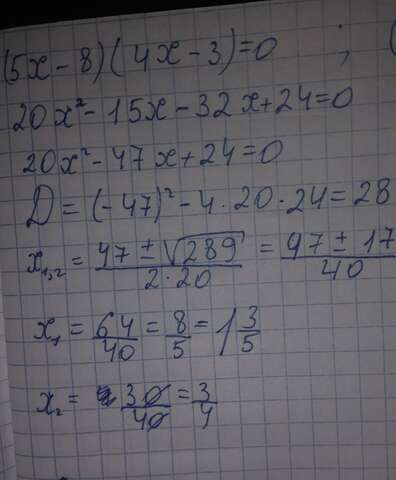 (5x-8)(4x-3)=0 ; (
20x²-15x-32x+24=0
20x²-47x+24=0
D=(-47)²-4·20·24=28
x₁,₂=(47±√289)/(2·20)=(47±17)/40
x₁=64/40=8/5=1 3/5
x₂=30/40=3/4